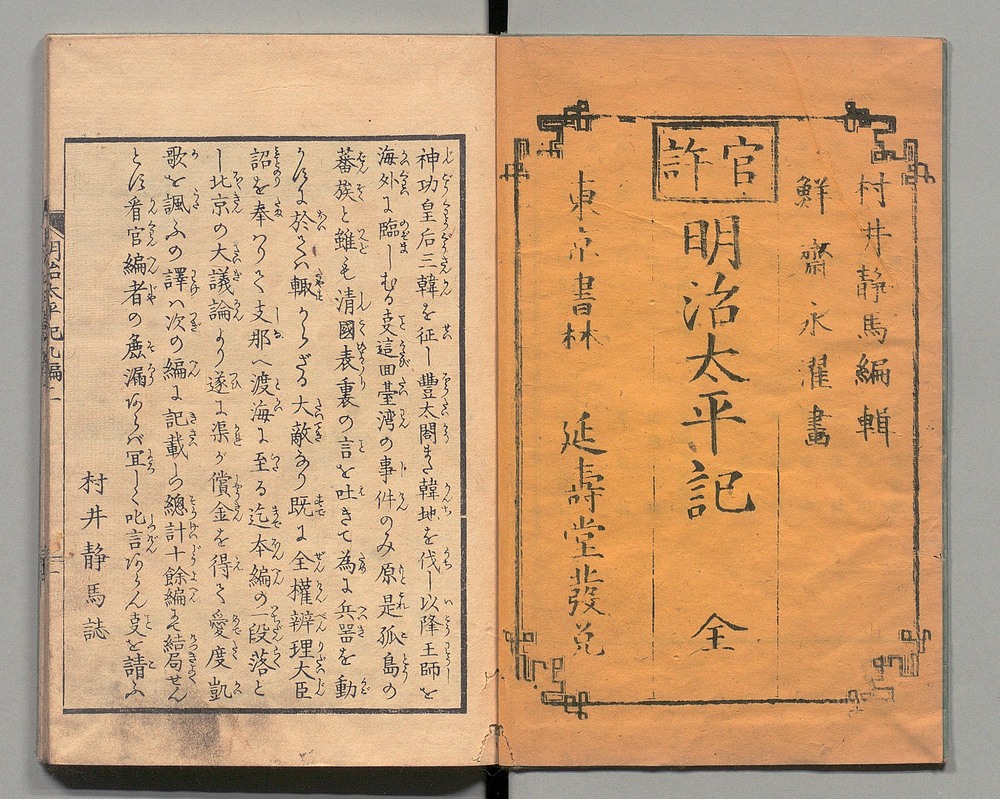 村井静馬編輯
鮮齋永濯畫
官許
明治太平記 全
東京書林 延壽堂發兌
神功皇后三韓を征し豐太閤また韓地を伐し以降王師を
海外に臨しむる支這回臺湾の事件のみ原是孤島の
蕃族と雖も清國表裏の言を吐きて為に兵噐を動
かすに於ては輙からざる大敵なり既に全權辨理大臣
詔を奉りて支那へ渡海に至る迄本編の一段落と
し北京の大議論より遂に渠が償金を得て愛度凱
歌を諷ふの譯は次の編に記載し總計十餘編にて結局せん
とす看官編者の麁漏あらバ宜しく叱言あらん支を請ふ
村井静馬誌
明治太平記九編